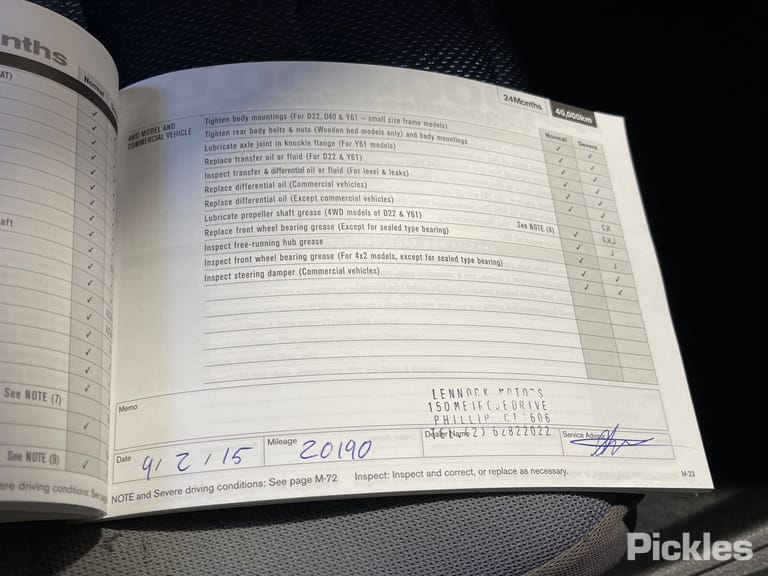 nths
AT)
Normal
aft
See NOTE (7)
See NOTE (9)
ere driving conditions: See
24Months
40,000km
Normal
Severe
4WD MODEL AND
COMMERCIAL VEHICLE
Tighten body mountings (For D22, D40 & Y61 – small size frame models)
Tighten rear body bolts & nuts (Wooden bed models only) and body mountings
Lubricate axle joint in knuckle flange (For Y61 models)
Replace transfer oil or fluid (For D22 & Y61)
Inspect transfer & differential oil or fluid (For level & leaks)
Replace differential oil (Commercial vehicles)
Replace differential oil (Except commercial vehicles)
Lubricate propeller shaft grease (4WD models of D22 & Y61)
Replace front wheel bearing grease (Except for sealed type bearing) See NOTE (6)
Inspect free-running hub grease
Inspect front wheel bearing grease (For 4x2 models, except for sealed type bearing)
Inspect steering damper (Commercial vehicles)
Memo
LENNOCK MOTORS
150 DRIVE
PHILLIP
62822022
Date 9/2/15
Mileage 20190
Dealer Name
Service Advisor
NOTE and Severe driving conditions: See page M-72 Inspect: Inspect and correct, or replace as necessary.
M-23
Pickles